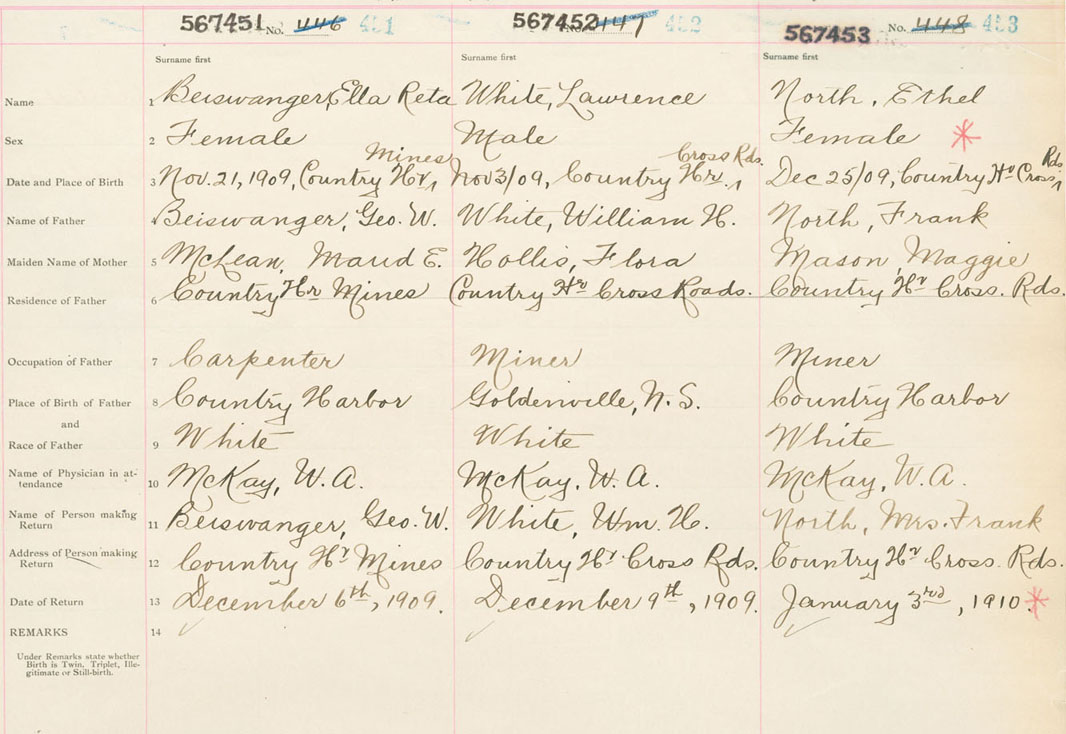 567451 No. 446 451 567452 No. 447 452 567453 No. 448 453
Surname first Surname first Surname first
Name 1 Beiswanger, Ella Reta White, Lawrence North, Ethel
Sex 2 Female Male Female *
Mines Cross Rds. Rds
Date and Place of Birth 3 Nov. 21, 1909, Country Hr Nov 3/09, Country Hr. Dec 25/09, Country Hr Cross
Name of Father 4 Beiswanger, Geo. W. White, William H. North, Frank
Maiden Name of Mother 5 McLean, Maud E. Hollis, Flora Mason, Maggie
Residence of Father 6 Country Hr Mines Country Hr Cross Roads. Country Hr Cross. Rds.
Occupation of Father 7 Carpenter Miner Miner
Place of Birth of Father 8 Country Harbor Goldenville, N. S. Country Harbor
and
Race of Father 9 White White White
Name of Physician in at-
tendance 10 McKay, W. A. McKay, W. A. McKay, W. A.
Name of Person making
Return 11 Beiswanger, Geo. W. White, Wm. H. North, Mrs. Frank
Address of Person making
Return 12 Country Hr Mines Country Hr Cross Rds. Country Hr Cross. Rds.
Date of Return 13 December 6th, 1909. December 9th, 1909. January 3rd, 1910. *
REMARKS 14
Under Remarks state whether
Birth is Twin, Triplet, Ille-
gitimate or Still-birth.